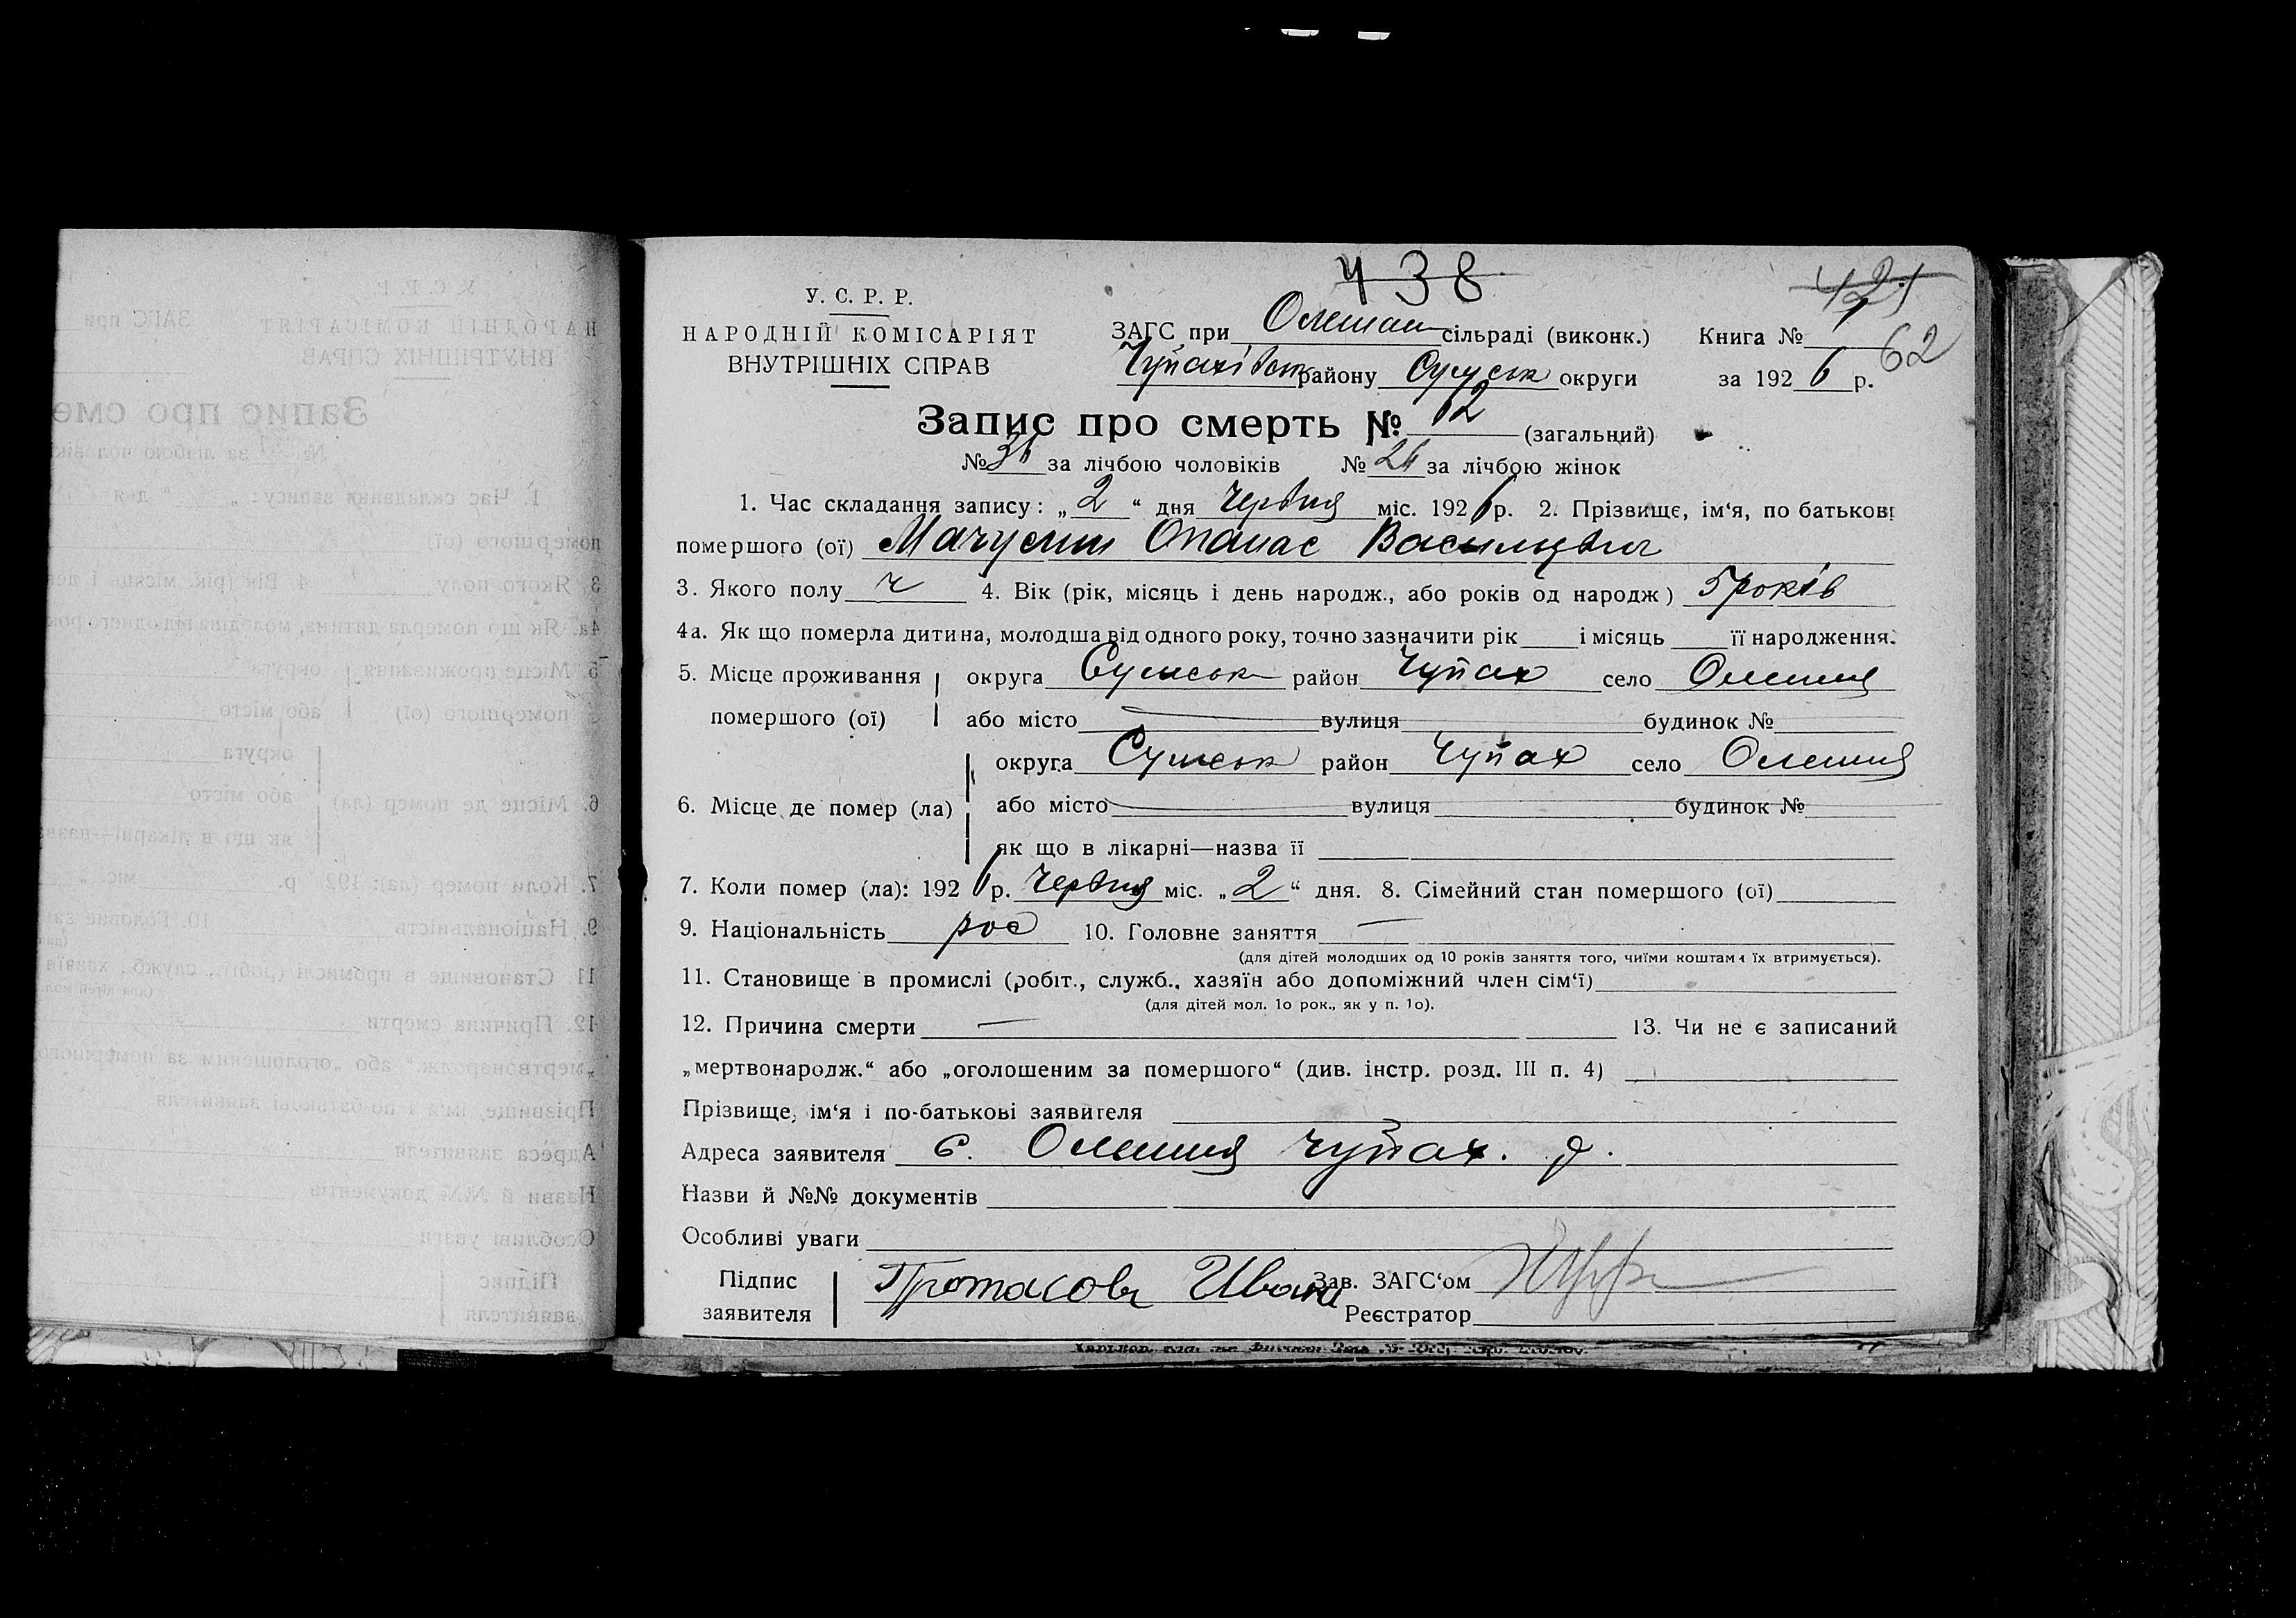 438
421
У. С. Р. Р.
НАРОДНІЙ КОМІСАРІЯТ
ВНУТРІШНІХ СПРАВ
ЗАГС при Олешан сільраді (виконк.)
Книга № 1
62
Чупахівськ району Сумськ округи
за 1926 р.
Запис про смерть № 62 (загальний)
№ 36 за лічбою чоловіків № 26 за лічбою жінок
1. Час складання запису: „2“ дня червня міс. 1926 р. 2. Прізвищє, ім‘я, по батькові
помершого (ої) Опанас Васильович
3. Якого полу ч 4. Вік (рік, місяць і день народж., або років од народж) 5 років
4а. Як що померла дитина, молодша від одного року, точно зазначити рік і місяць її народження.
5. Місце проживання округа Сумськ район Чупах село Олешня
помершого (ої) або місто вулиця будинок №
округа Сумськ район Чупах село Олешня
6. Місце де помер (ла) або місто вулиця будинок №
як що в лікарні—назва її
7. Коли помер (ла): 1926 р. червня міс. „2“ дня. 8. Сімейний стан помершого (ої)
9. Національність рос 10. Головне заняття —
(для дітей молодших од 10 років заняття того, чиїми коштами їх втримується).
11. Становище в промислі (робіт., служб., хазяїн або допоміжний член сім‘ї)
(для дітей мол. 1о рок., як у п. 1о).
12. Причина смерти — 13. Чи не є записаний
„мертвонародж.“ або „оголошеним за помершого“ (див. інстр. розд. III п. 4)
Прізвище, ім‘я і по-батькові заявителя
Адреса заявителя с. Олешня Чупах. р.
Назви й №№ документів
Особливі уваги
Підпис заявителя Протасовъ Ивана
Зав. ЗАГС‘ом
Реєстратор